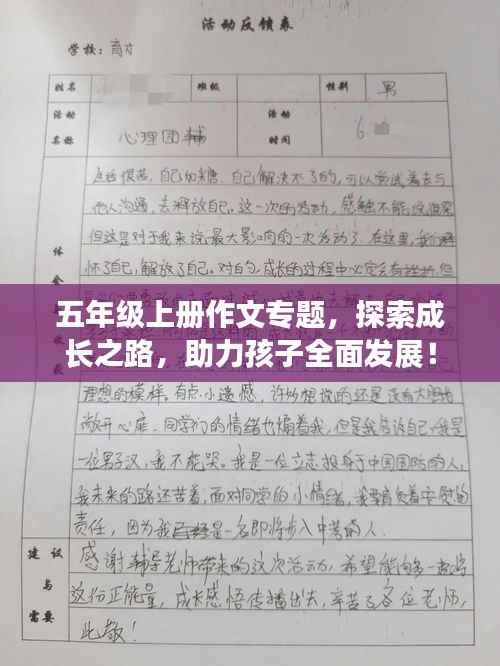 活动反馈表
学校：育才
姓名 班级 性别 男
活动名称 心理团辅 活动时间 6
自己加糖，自己解决不了的，可以尝试着去与
他人沟通，去释放自己。这一次的活动，感触不能说很深
但这是对于我来说最大影响的一次活动了，在这里，我们释
怀了自己，解放了自己。对的，成长的过程中必定会有挫折
五年级上册作文专题，探索成
长之路，助力孩子全面发展！
理想的模样。有点小遗憾，许多想说的还是没有大胆
敞开心扉，同学们的情绪也煽着我，但是我告诉自己，我是
一位男子汉，我不能哭。我是一位立志投身于中国国防的人，
我未来的路还苦着，面对同学的小情绪，我要肩负着安慰的
责任，因为我是一名即将步入中考的人.
建议与需要
感谢辅导老师带来的这次活动，希望能够多一些将
这份正能量，成长感悟传播出去，辛苦了各位老师，
此致！